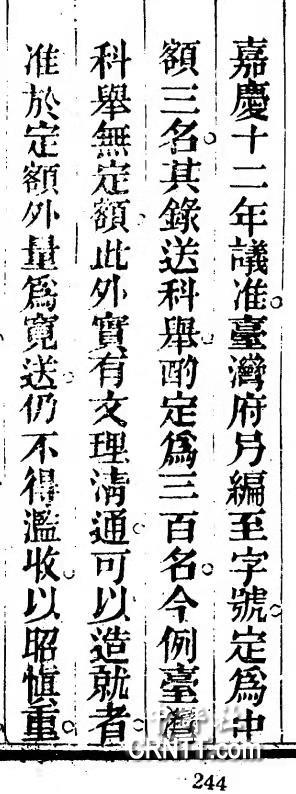 嘉慶十二年議准。臺灣府另編至字號。定爲中
額三名。其錄送科舉。酌定爲三百名。今例臺灣
科舉無定額、此外實有文理淸通。可以造就者。
准於定額外量爲寬送。仍不得濫收。以昭愼重。
中評社
CRNTT.com
244